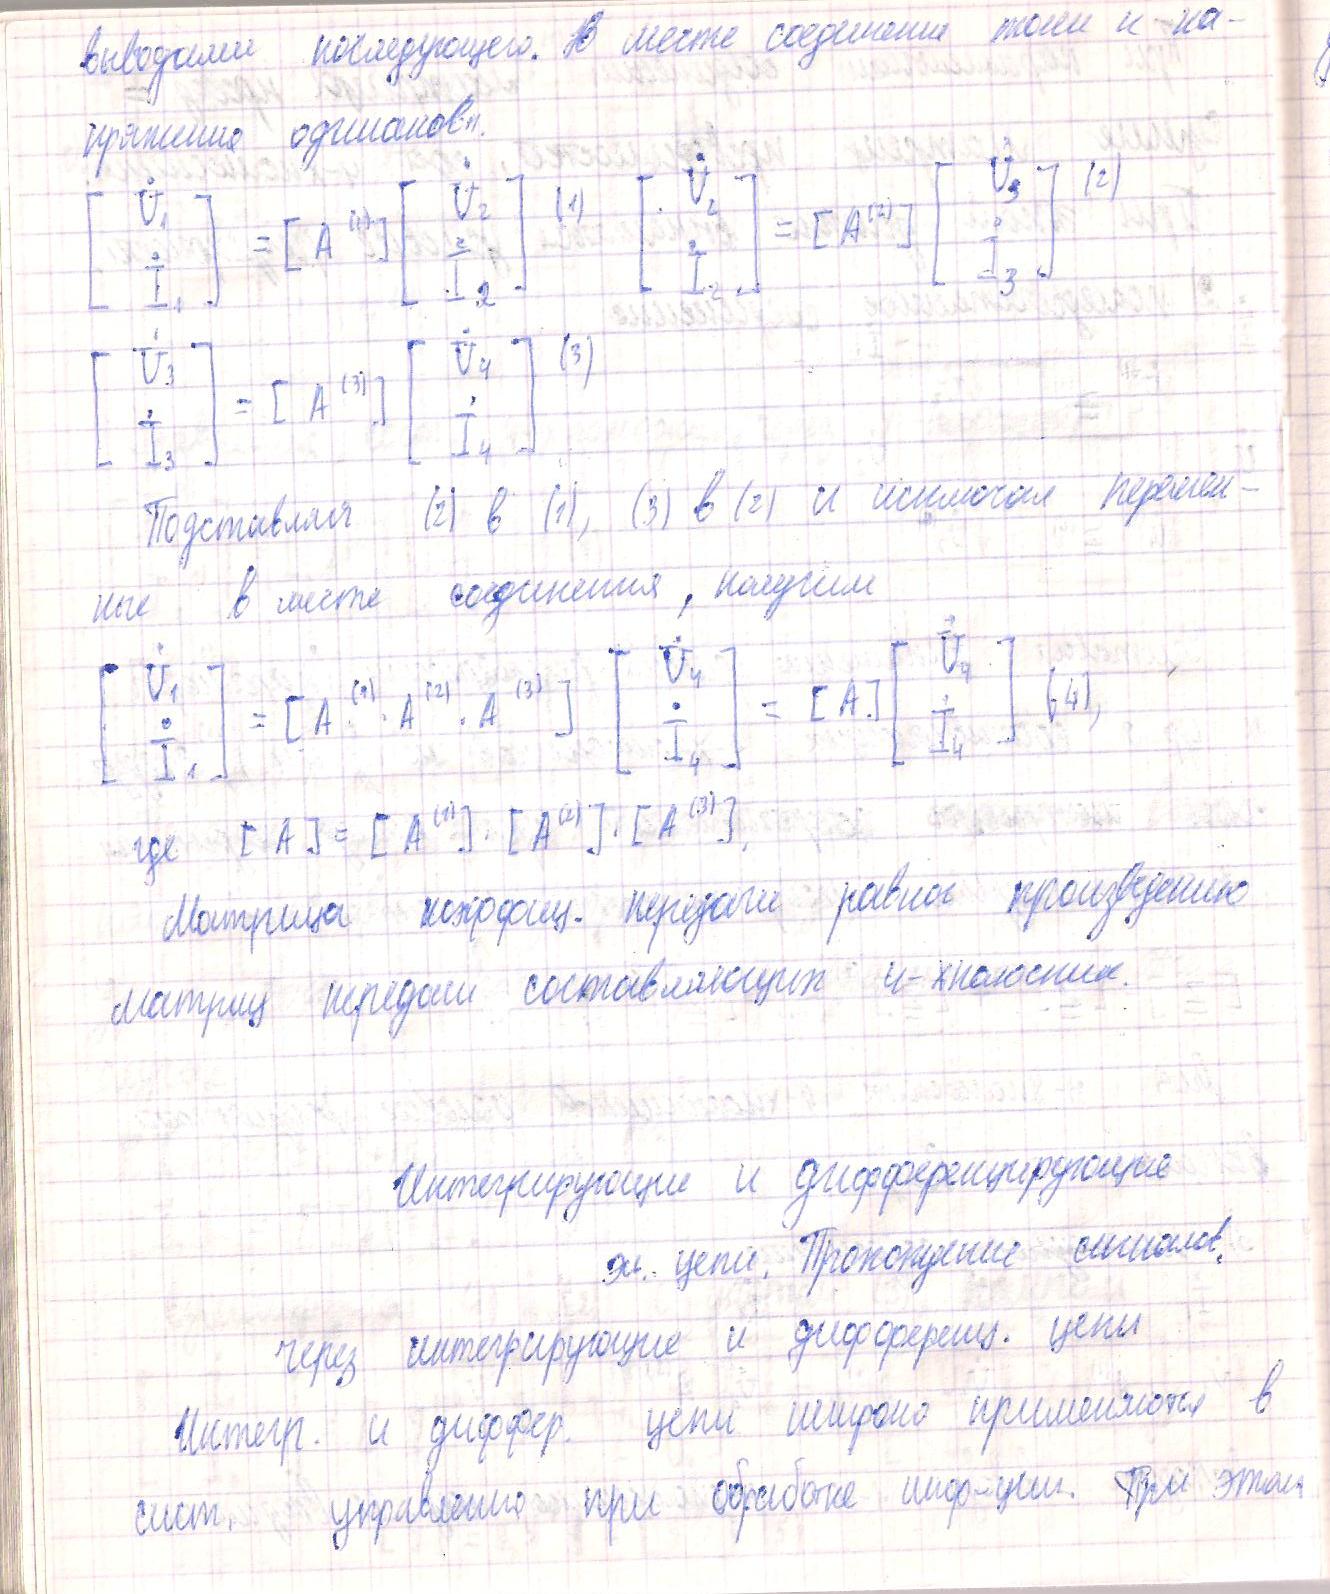 выводами последующего. В месте соединения токи и на-
пряжения одинаковы.
[U̇₁ İ₁] = [A⁽¹⁾] [U̇₂ İ₂] (1) [U̇₂ İ₂] = [A⁽²⁾] [U̇₃ İ₃] (2)
[U̇₃ İ₃] = [A⁽³⁾] [U̇₄ İ₄] (3)
Подставляя (2) в (1), (3) в (2) и исключая перемен-
ные в месте соединения, получим
[U̇₁ İ₁] = [A⁽¹⁾ · A⁽²⁾ · A⁽³⁾] [U̇₄ İ₄] = [A] [U̇₄ İ₄] (4),
где [A] = [A⁽¹⁾] · [A⁽²⁾] · [A⁽³⁾].
Матрица коэффиц. передачи равна произведению
матриц передачи составляющих 4-хполюсник.
Интегрирующие и дифференцирующие
эл. цепи. Прохождение сигналов
через интегрирующие и дифференц. цепи
Интегр. и диффер. цепи широко применяются в
сист. управления при обработке инф-ции. При этом